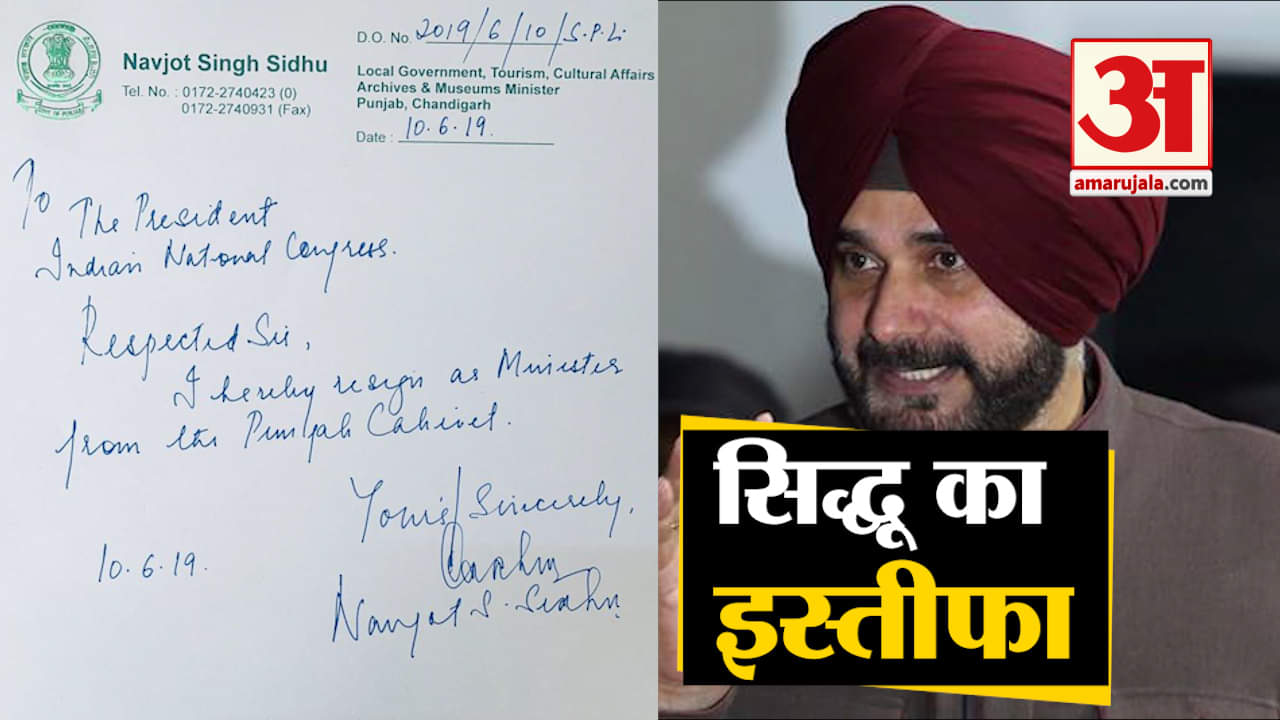 Navjot Singh Sidhu
Tel. No. : 0172-2740423 (0)
0172-2740931 (Fax)
D.O. No. 2019/6/10/S.P.Li
Local Government, Tourism, Cultural Affairs
Archives & Museums Minister
Punjab, Chandigarh
Date : 10.6.19.
To
The President
Indian National Congress.
Respected Sir,
I hereby resign as Minister
from the Punjab Cabinet.
Yours Sincerely,
10.6.19.
Navjot S. Sidhu
अ
amarujala.com
सिद्धू का
इस्तीफा